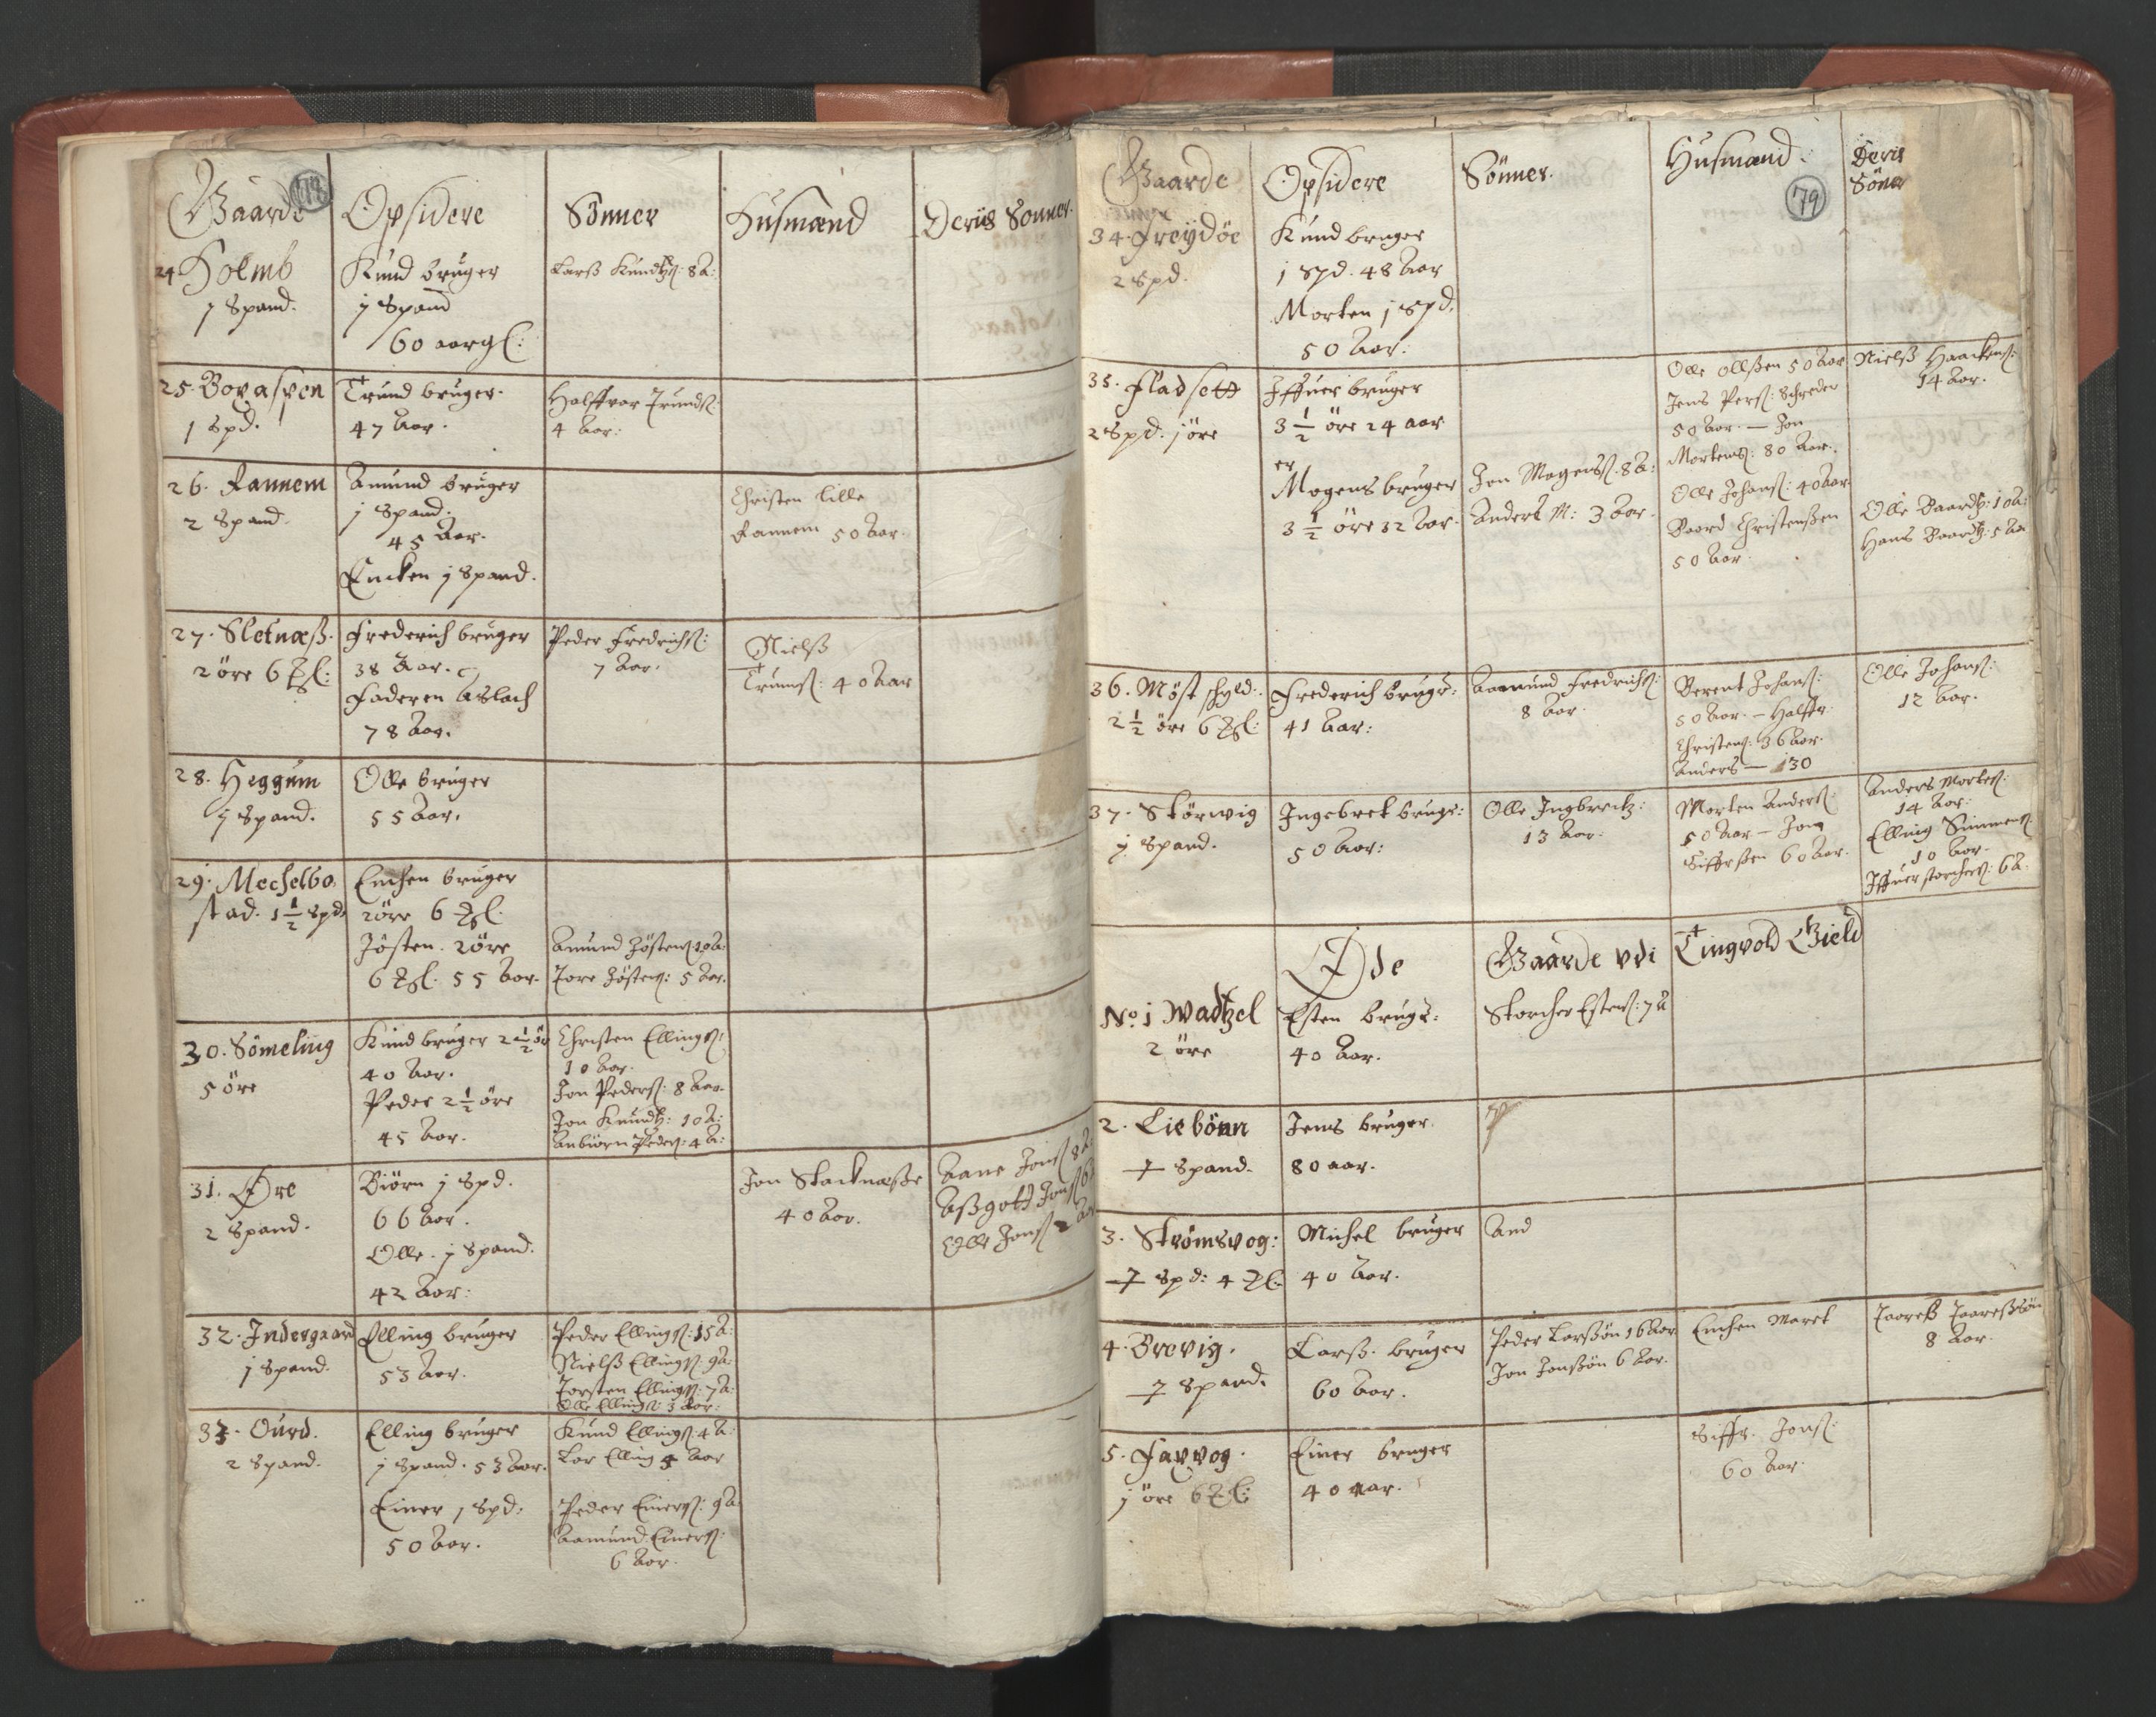 78
Gaarde Opsidere Sönner Husmænd Deris Sonner.
24 Holmb
1 Spand.
Knud bruger
j Spand
60 aar gl:
Larß Knudtz: 8 A:
25. Boraspen
1 Spd.
Trund bruger.
47 Aar.
Halffvor Trundß:
4 Aar:
26. Rannem
2 Spand.
Amund bruger
j Spand.
45 Aar.
Encken j Spand.
Christen lille
Rannem 50 Aar.
27. Sletnæß.
2 öre 6
Frederich bruger
38 Aar.
Faderen Aslach
78 Aar.
Peder Fredrichß:
7 Aar.
Nielß
Trumß: 40 Aar
28. Heggum
j Spand.
Olle bruger
55 Aar.
29. Mechelbo
stad. 1 1/2 Spd.
Enchen bruger
2 öre 6
Jösten. 2 öre
6 55 Aar.
Amund Jöstenß
Tore Jöstenß: 5 Aar.
30. Sömeling
5 öre
Knud bruger 2 1/2 ör
40 Aar.
Peder 2 1/2 öre
45 Aar.
Christen Ellingß:
10 Aar.
Jon Pederß: 8 Aar.
Jon Knudtz: 10 A:
Anbiörn Pederß: 4 A:
31. Øre
2 Spand.
Biörn j Spd.
66 Aar.
Olle. j Spand.
42 Aar:
Jon Stacknæsße
40 Aar.
Aane Jonß 8 A:
Aßgott Jonß
Jonß 2 Aar
32. Indergaard
j Spand.
Elling bruger
53 Aar.
Peder Ellingß: 15 A:
Nielß Ellingß: 9 A:
Torsten Ellingß: 7 A:
Olle Ellingß: 3 Aar:
33. Ourd.
2 Spand.
Elling bruger
j Spand. 53 Aar.
Einer 1 Spd:
50 Aar.
Knud Ellingß. 4 A:
Lor Elling Aar
Peder Einerß: 9 A:
Aamund Einerß:
6 Aar.
79
Gaarde Opsidere Sönner. Husmænd: Deris
Söner
34. Freydöe
2 Spd.
Knud bruger
j Spd. 48 Aar
Morten j Spd.
50 Aar.
35. Fladsett
2 Spd. j öre
Iffuer bruger
3 1/2 öre 24 aar
Mogens bruger
3 1/2 öre 32 Aar.
Jon Mogensß. 8 A:
Anders M: 3 Aar.
Olle Ollßen 50 Aar
Jens Persß: Schreder
50 Aar. — Jon
Mortensß: 80 Aar.
Olle Johansß: 40 Aar
Baard Christenßen
50 Aar.
Nielß Haackensß:
14 Aar.
Olle Baardtz: 10 A:
Hans Baardtz: 5 Aar
36. Möst shyld:
2 1/2 öre 6
Frederich bruger:
41 Aar:
Aamund Fredrichß:
8 Aar.
Berent Johansß:
50 Aar. — Halffr.
Christenß: 36 Aar.
Anders — 130
Olle Johansß:
12 Aar.
37. Störwig
j Spand.
Ingebret bruger:
50 Aar:
Olle Ingbretz:
13 Aar.
Morten Andersß:
50 Aar — Jon
Siffrßen 60 Aar.
Anders Mortenß:
14 Aar:
Elling Simmensß:
10 Aar.
Iffuer Storchersß: 6 A.
Øde Gaarde vdi Tingvold Gield
No. j Wadtzel
2 öre
Esten bruger:
40 Aar.
Storcher Estensß: 7 A
2. Liebönn
Spand.
Jens bruger.
80 aar.
3. Strømsvog:
Spd: 4
Michel bruger
40 Aar.
And
4. Brevig.
Spand.
Larß. bruger
60 Aar.
Peder Larßön 16 Aar
Jon Jonßön 6 Aar.
Enchen Maret
Joareß Joareßsön
8 Aar.
5. Farvog.
j öre 6
Einer bruger
40 Aar.
Siffr. Jonß:
60 Aar.